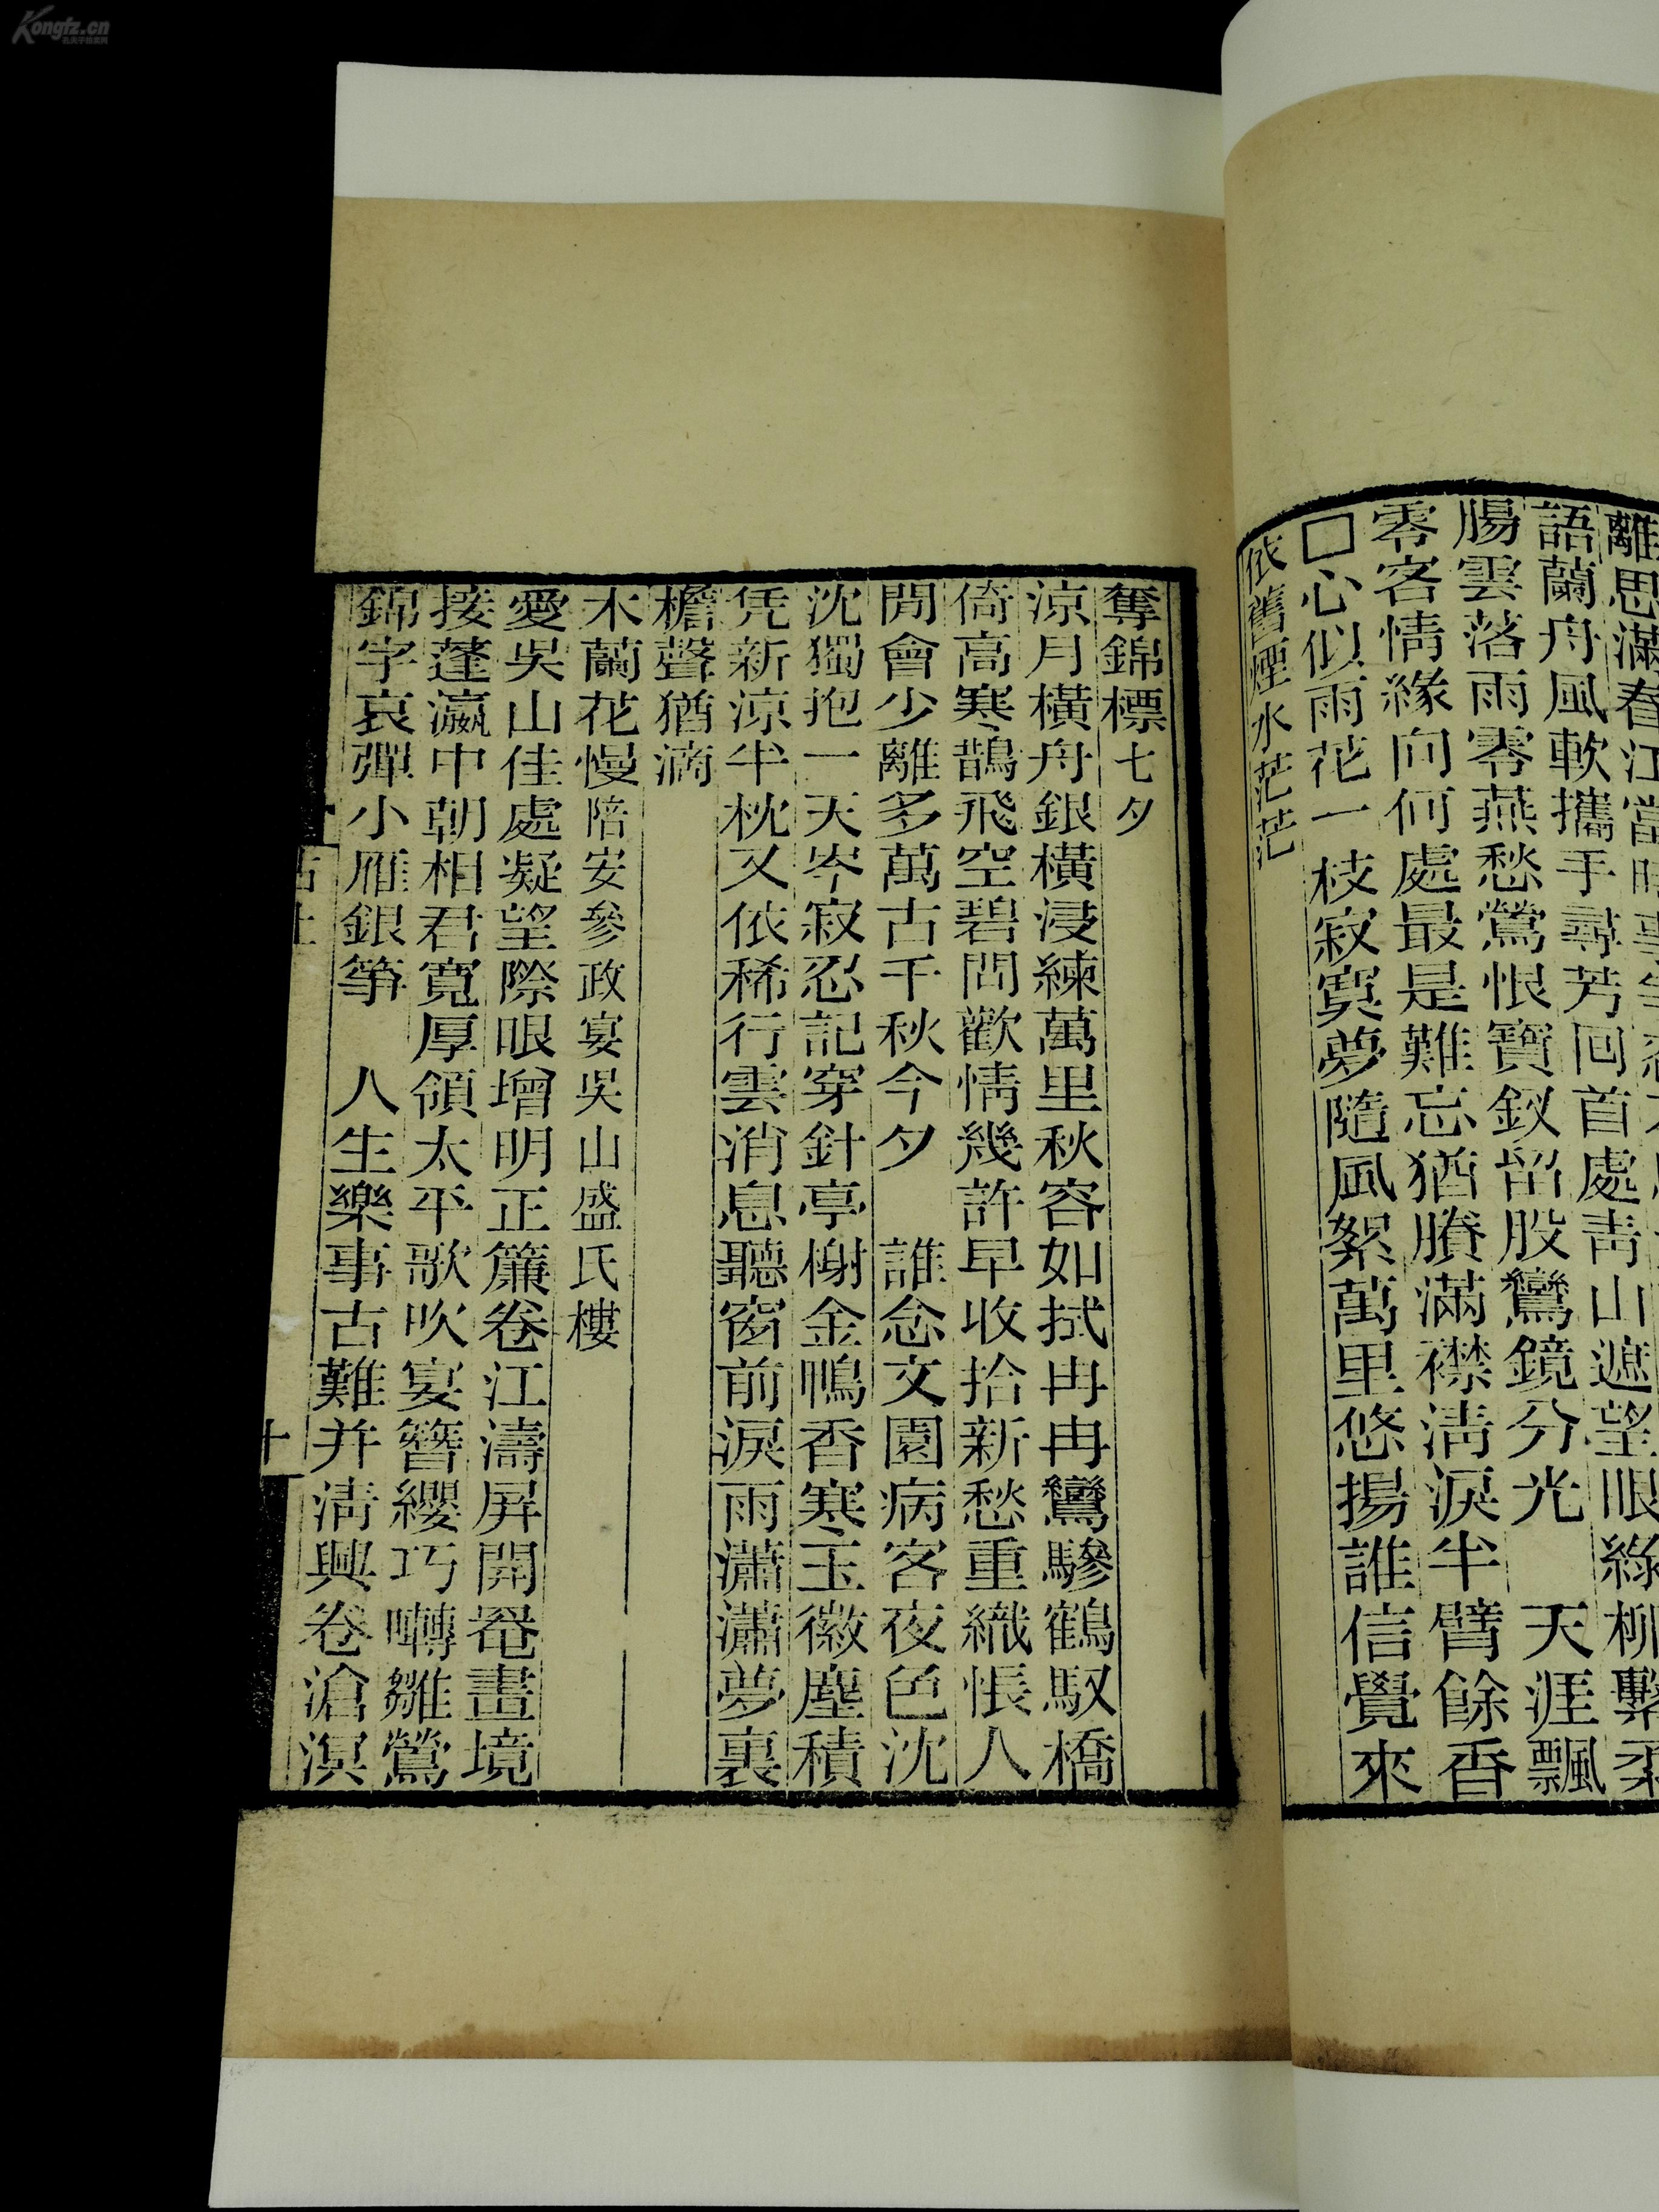 Kongfz.cn
孔夫子旧书网
語蘭舟風軟攜手尋芳回首處靑山遮望眼綠柳繫柔
腸雲落雨零燕愁鶯恨寶釵留股鸞鏡分光　天涯飄
零客情緣向何處最是難忘猶賸滿襟淸淚半臂餘香
□心似雨花一枝寂寞夢隨風絮萬里悠揚誰信覺來
依舊煙水茫茫
奪錦標七夕
涼月橫舟銀橫浸練萬里秋容如拭冉冉鸞驂鶴馭橋
倚高寒鵲飛空碧問歡情幾許早收拾新愁重織悵人
閒會少離多萬古千秋今夕　誰念文園病客夜色沈
沈獨抱一天岑寂忍記穿針亭榭金鴨香寒玉徽塵積
凭新涼半枕又依稀行雲消息聽窗前淚雨瀟瀟夢裏
檐聲猶滴
木蘭花慢陪安參政宴吳山盛氏樓
愛吳山佳處凝望際眼增明正簾卷江濤屏開罨畫境
接蓬瀛中朝相君寬厚領太平歌吹宴簪纓巧囀雛鶯
錦字哀彈小雁銀箏　人生樂事古難并淸興卷滄溟